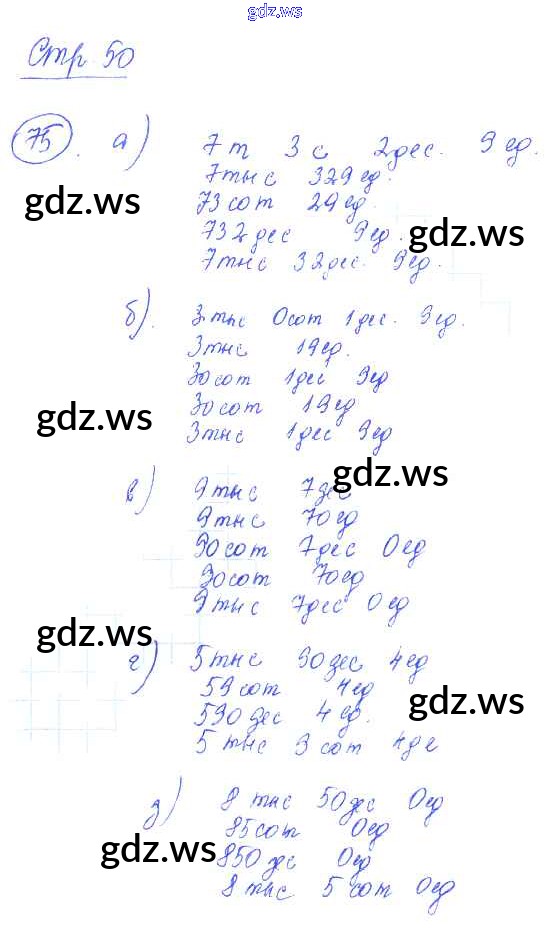 gdz.ws
Стр. 50
75. а) 7 т 3 с 2 дес. 9 ед.
7 тыс 329 ед.
gdz.ws
73 сот 29 ед.
732 дес 9 ед.
gdz.ws
7 тыс 32 дес. 9 ед.
б). 3 тыс 0 сот 1 дес. 9 ед.
3 тыс 19 ед.
30 сот 1 дес 9 ед
gdz.ws
30 сот 19 ед
3 тыс 1 дес 9 ед
gdz.ws
в) 9 тыс 7 дес
9 тыс 70 ед
90 сот 7 дес 0 ед
90 сот 70 ед
9 тыс 7 дес 0 ед
gdz.ws
г) 5 тыс 90 дес 4 ед
59 сот 4 ед
gdz.ws
590 дес 4 ед.
5 тыс 9 сот 4 де
д) 8 тыс 50 дес 0 ед
85 сот 0 ед
gdz.ws
850 дс 0 ед
8 тыс 5 сот 0 ед